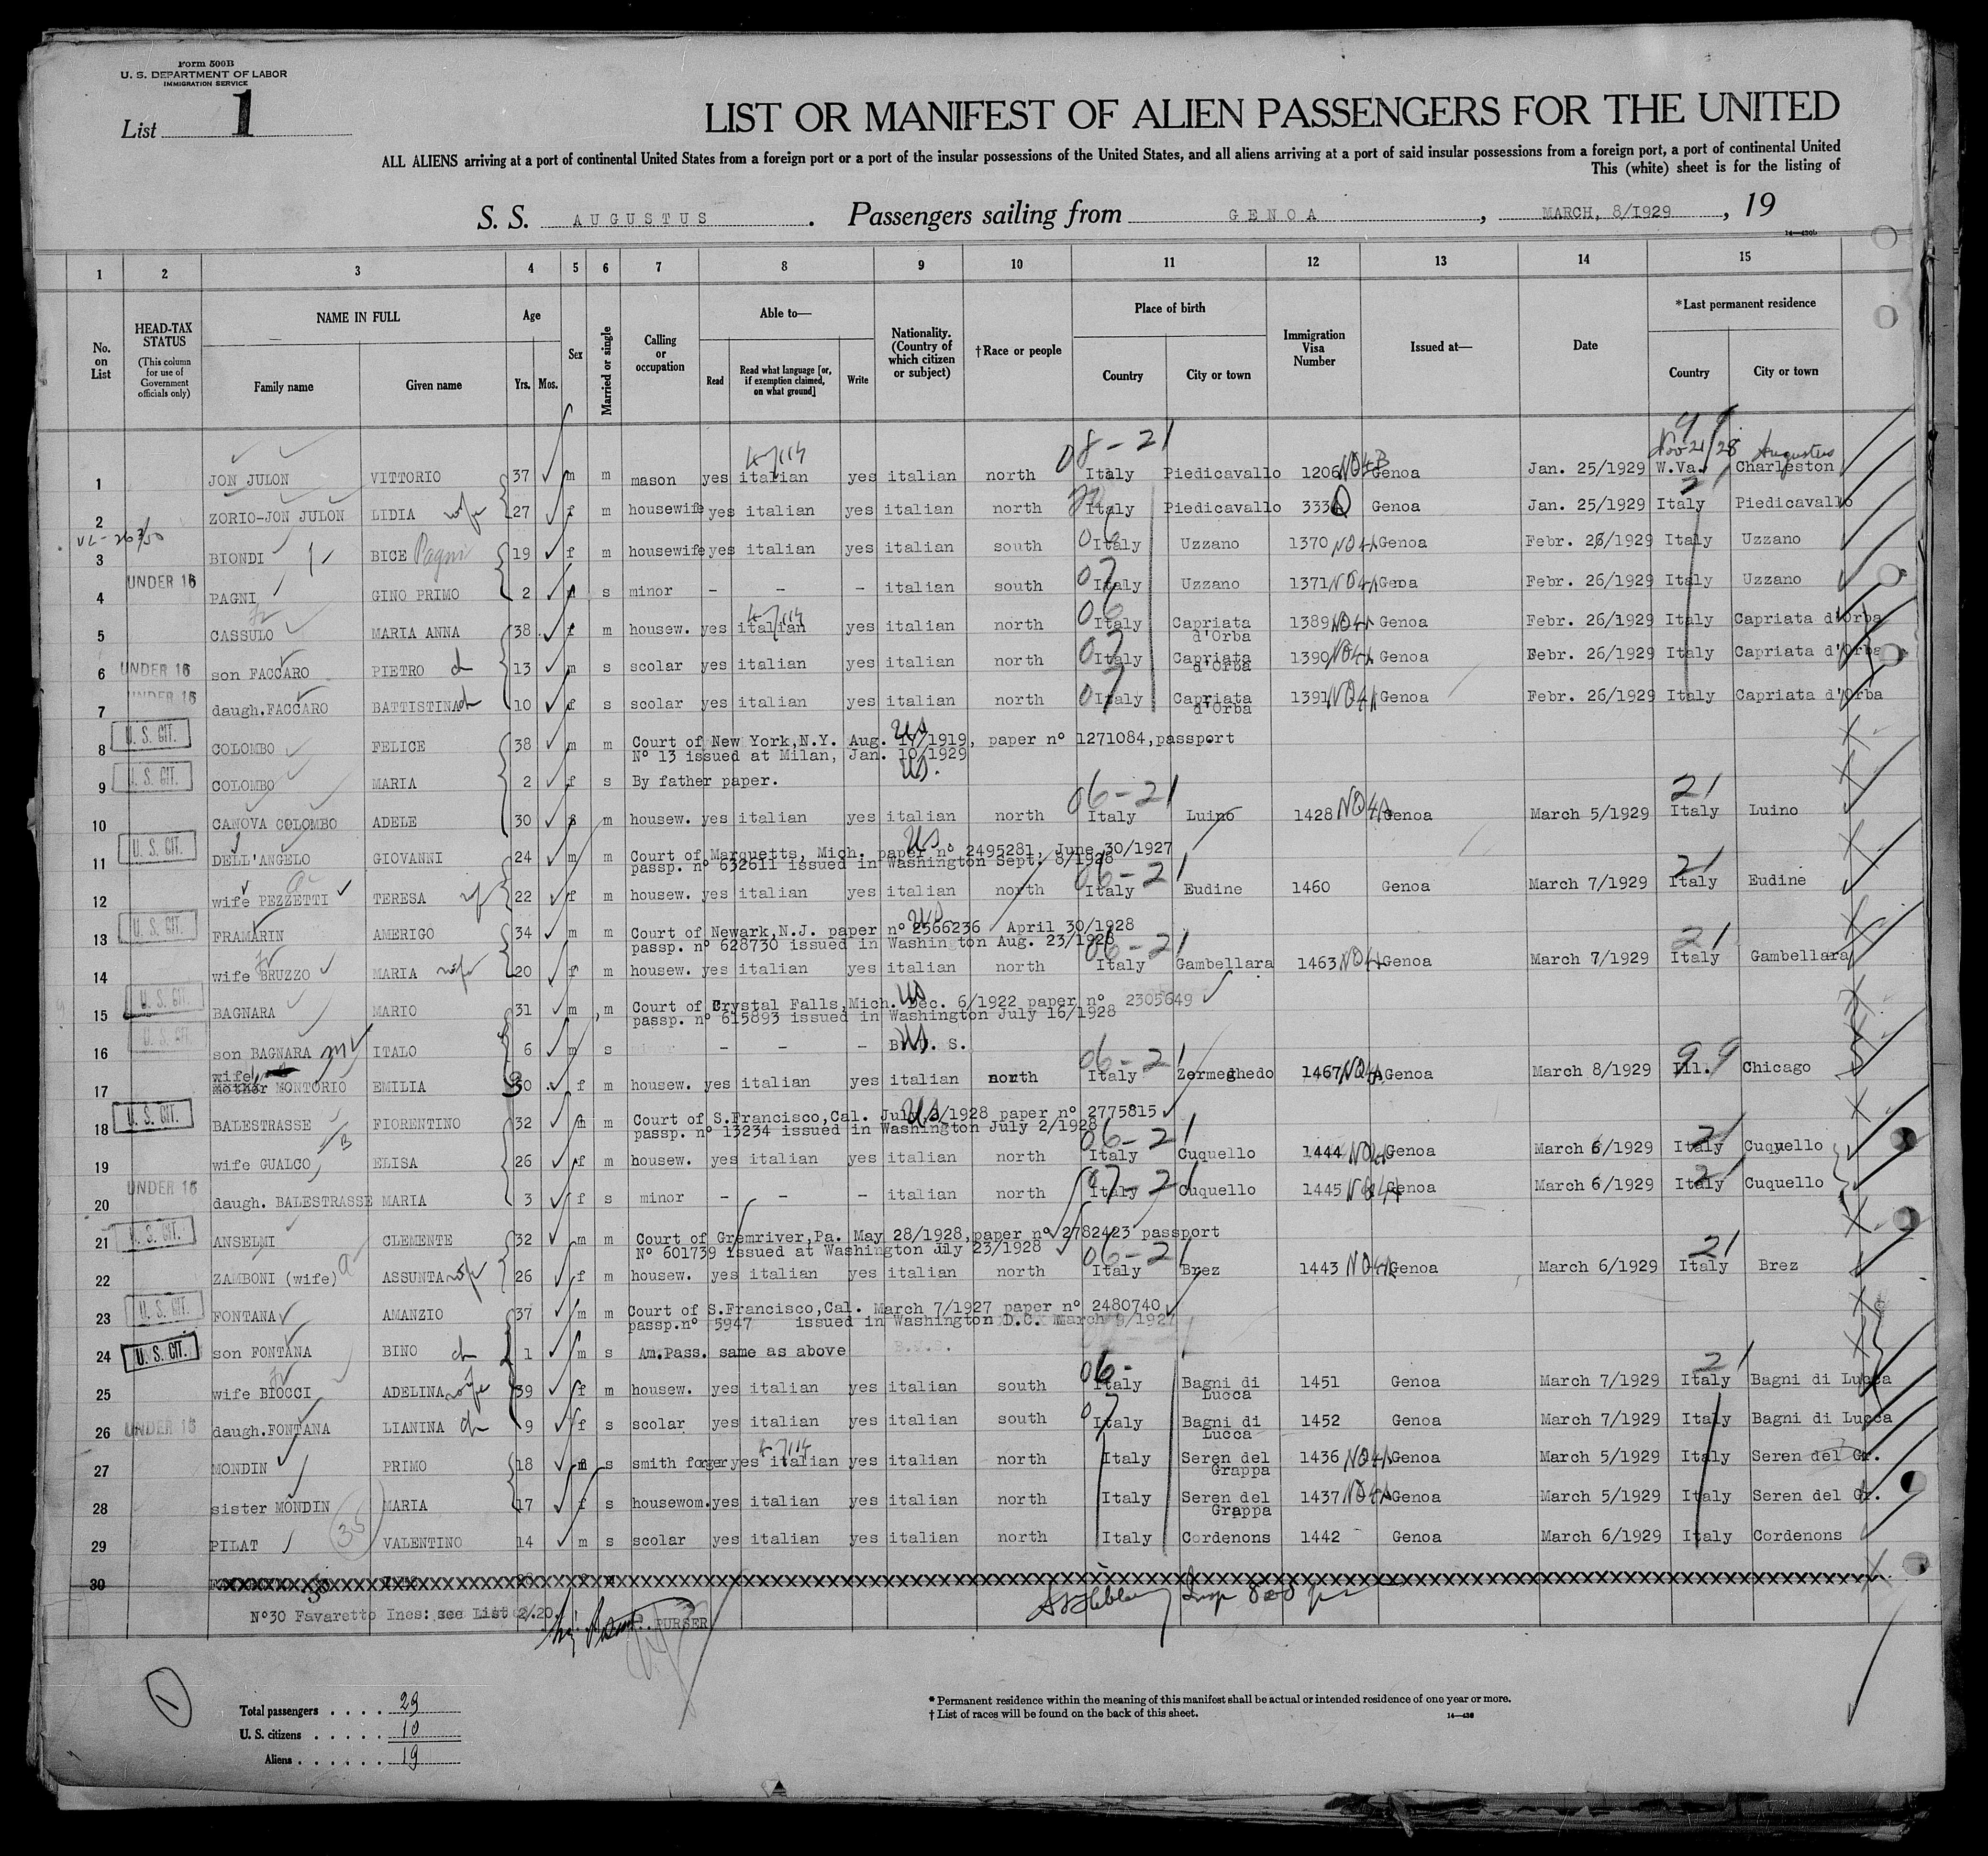 Form 500B
U. S. DEPARTMENT OF LABOR
IMMIGRATION SERVICE
List 1
LIST OR MANIFEST OF ALIEN PASSENGERS FOR THE UNITED
ALL ALIENS arriving at a port of continental United States from a foreign port or a port of the insular possessions of the United States, and all aliens arriving at a port of said insular possessions from a foreign port, a port of continental United
This (white) sheet is for the listing of
S. S. AUGUSTUS. Passengers sailing from GENOA, MARCH, 8/1929, 19
14—430b
1 2 3 4 5 6 7 8 9 10 11 12 13 14 15
No. on List
HEAD-TAX STATUS (This column for use of Government officials only)
NAME IN FULL
Family name Given name
Age
Yrs. Mos.
Sex
Married or single
Calling or occupation
Able to—
Read
Read what language [or, if exemption claimed, on what ground]
Write
Nationality. (Country of which citizen or subject)
†Race or people
Place of birth
Country City or town
Immigration Visa Number
Issued at—
Date
*Last permanent residence
Country City or town
08-21 Nov 21/28 Augustus
1 JON JULON VITTORIO 37 m m mason yes italian yes italian north Italy Piedicavallo 1206 NQ4B Genoa Jan. 25/1929 W.Va. Charleston
2 ZORIO-JON JULON LIDIA wife 27 f m housewife yes italian yes italian north Italy Piedicavallo 333 Genoa Jan. 25/1929 Italy Piedicavallo
3 BIONDI BICE Pagni 19 f m housewife yes italian yes italian south Italy Uzzano 1370 NQ4A Genoa Febr. 26/1929 Italy Uzzano
4 UNDER 16 PAGNI GINO PRIMO 2 s minor - - - italian south Italy Uzzano 1371 NQ4A Genoa Febr. 26/1929 Italy Uzzano
5 CASSULO MARIA ANNA 38 f m housew. yes italian yes italian north Italy Capriata d'Orba 1389 NQ4A Genoa Febr. 26/1929 Italy Capriata d'Orba
6 UNDER 16 son FACCARO PIETRO ch 13 m s scolar yes italian yes italian north Italy Capriata d'Orba 1390 NQ4A Genoa Febr. 26/1929 Italy Capriata d'Orba
7 UNDER 16 daugh.FACCARO BATTISTINA ch 10 f s scolar yes italian yes italian north Italy Capriata d'Orba 1391 NQ4A Genoa Febr. 26/1929 Italy Capriata d'Orba
8 U. S. CIT. COLOMBO FELICE 38 m m Court of New York,N.Y. Aug. 17/1919, paper n° 1271084,passport
N° 13 issued at Milan, Jan. 10/1929
9 U. S. CIT. COLOMBO MARIA 2 f s By father paper. US.
10 CANOVA COLOMBO ADELE 30 m housew. yes italian yes italian north 06-21 Italy Luino 1428 NQ4A Genoa March 5/1929 21 Italy Luino
11 U. S. CIT. DELL'ANGELO GIOVANNI 24 m m Court of Marquetts, Mich. paper n° 2495281, June 30/1927
passp. n° 632611 issued in Washington Sept. 8/1928
12 wife PEZZETTI TERESA wf 22 f m housew. yes italian yes italian north 06-21 Italy Eudine 1460 Genoa March 7/1929 21 Italy Eudine
13 U. S. CIT. FRAMARIN AMERIGO 34 m m Court of Newark,N.J. paper n° 2566236 April 30/1928
passp. n° 628730 issued in Washington Aug. 23/1928
14 wife BRUZZO MARIA wife 20 f m housew. yes italian yes italian north 06-21 Italy Gambellara 1463 NQ4A Genoa March 7/1929 21 Italy Gambellara
15 U. S. CIT. BAGNARA MARIO 31 m m Court of Crystal Falls,Mich. Dec. 6/1922 paper n° 2305649
passp. n° 615893 issued in Washington July 16/1928
16 U. S. CIT. son BAGNARA ITALO 6 m s minor - - - S.
17 wife MONTORIO EMILIA 30 f m housew. yes italian yes italian north 06-21 Italy Zermeghedo 1467 NQ4A Genoa March 8/1929 Ill. 99 Chicago
18 U. S. CIT. BALESTRASSE FIORENTINO 32 m m Court of S.Francisco,Cal. July 2/1928 paper n° 2775815
passp. n° 13234 issued in Washington July 2/1928
19 wife GUALCO ELISA 26 f m housew. yes italian yes italian north 06-21 Italy Cuquello 1444 NQ4A Genoa March 6/1929 21 Italy Cuquello
20 UNDER 16 daugh. BALESTRASSE MARIA 3 f s minor - - - italian north 07-21 Italy Cuquello 1445 NQ4A Genoa March 6/1929 21 Italy Cuquello
21 U. S. CIT. ANSELMI CLEMENTE 32 m m Court of Gremriver,Pa. May 28/1928,paper n° 2782423 passport
N° 601739 issued at Washington July 23/1928
22 ZAMBONI (wife) ASSUNTA wife 26 f m housew. yes italian yes italian north 06-21 Italy Brez 1443 NQ4A Genoa March 6/1929 21 Italy Brez
23 U. S. CIT. FONTANA AMANZIO 37 m m Court of S.Francisco,Cal. March 7/1927 paper n° 2480740
passp.n° 5947 issued in Washington D.C. March 9/1927
24 U. S. CIT. son FONTANA BINO ch 1 m s Am.Pass. same as above
25 wife BIOCCI ADELINA wife 39 f m housew. yes italian yes italian south 06- Italy Bagni di Lucca 1451 Genoa March 7/1929 21 Italy Bagni di Lucca
26 UNDER 16 daugh.FONTANA LIANINA ch 9 f s scolar yes italian yes italian south 07 Italy Bagni di Lucca 1452 Genoa March 7/1929 Italy Bagni di Lucca
27 MONDIN PRIMO 18 m s smith forger yes italian yes italian north Italy Seren del Grappa 1436 NQ4A Genoa March 5/1929 Italy Seren del Gr.
28 sister MONDIN MARIA 17 f s housewom. yes italian yes italian north Italy Seren del Grappa 1437 NQ4A Genoa March 5/1929 Italy Seren del Gr.
29 PILAT VALENTINO 14 m s scolar yes italian yes italian north Italy Cordenons 1442 Genoa March 6/1929 Italy Cordenons
30
N°30 Favaretto Ines: see List 2/20. PURSER
1
Total passengers . . . . 29
U. S. citizens . . . . . 10
Aliens . . . . . . 19
* Permanent residence within the meaning of this manifest shall be actual or intended residence of one year or more.
† List of races will be found on the back of this sheet.
14—430